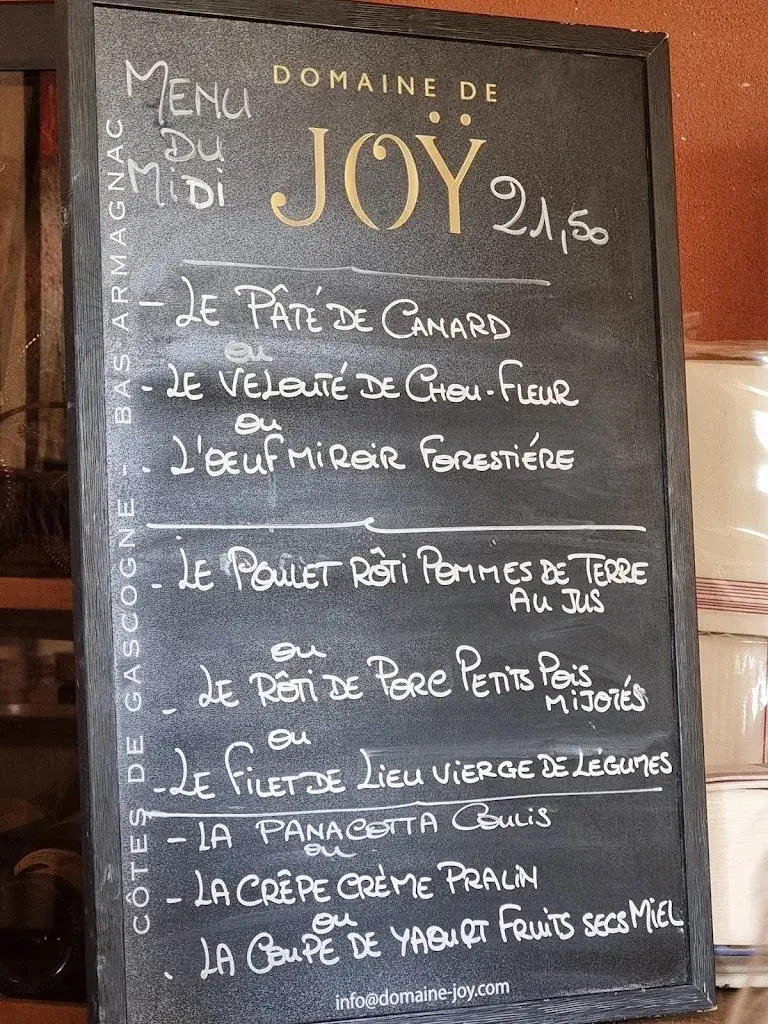 MENU
DU
MIDI
DOMAINE DE
JOŸ
21,50
CÔTES DE GASCOGNE - BAS ARMAGNAC
- LE PÂTÉ DE CANARD
OU
- LE VELOUTÉ DE CHOU-FLEUR
OU
- L'OEUF MIROIR FORESTIÉRE
- LE POULET RÔTI POMMES DE TERRE
AU JUS
OU
- LE RÔTI DE PORC PETITS POIS
MIJOTÉS
OU
- LE FILET DE LIEU VIERGE DE LÉGUMES
- LA PANACOTTA COULIS
OU
- LA CRÊPE CRÈME PRALIN
OU
- LA COUPE DE YAOURT FRUITS SECS MIEL
info@domaine-joy.com